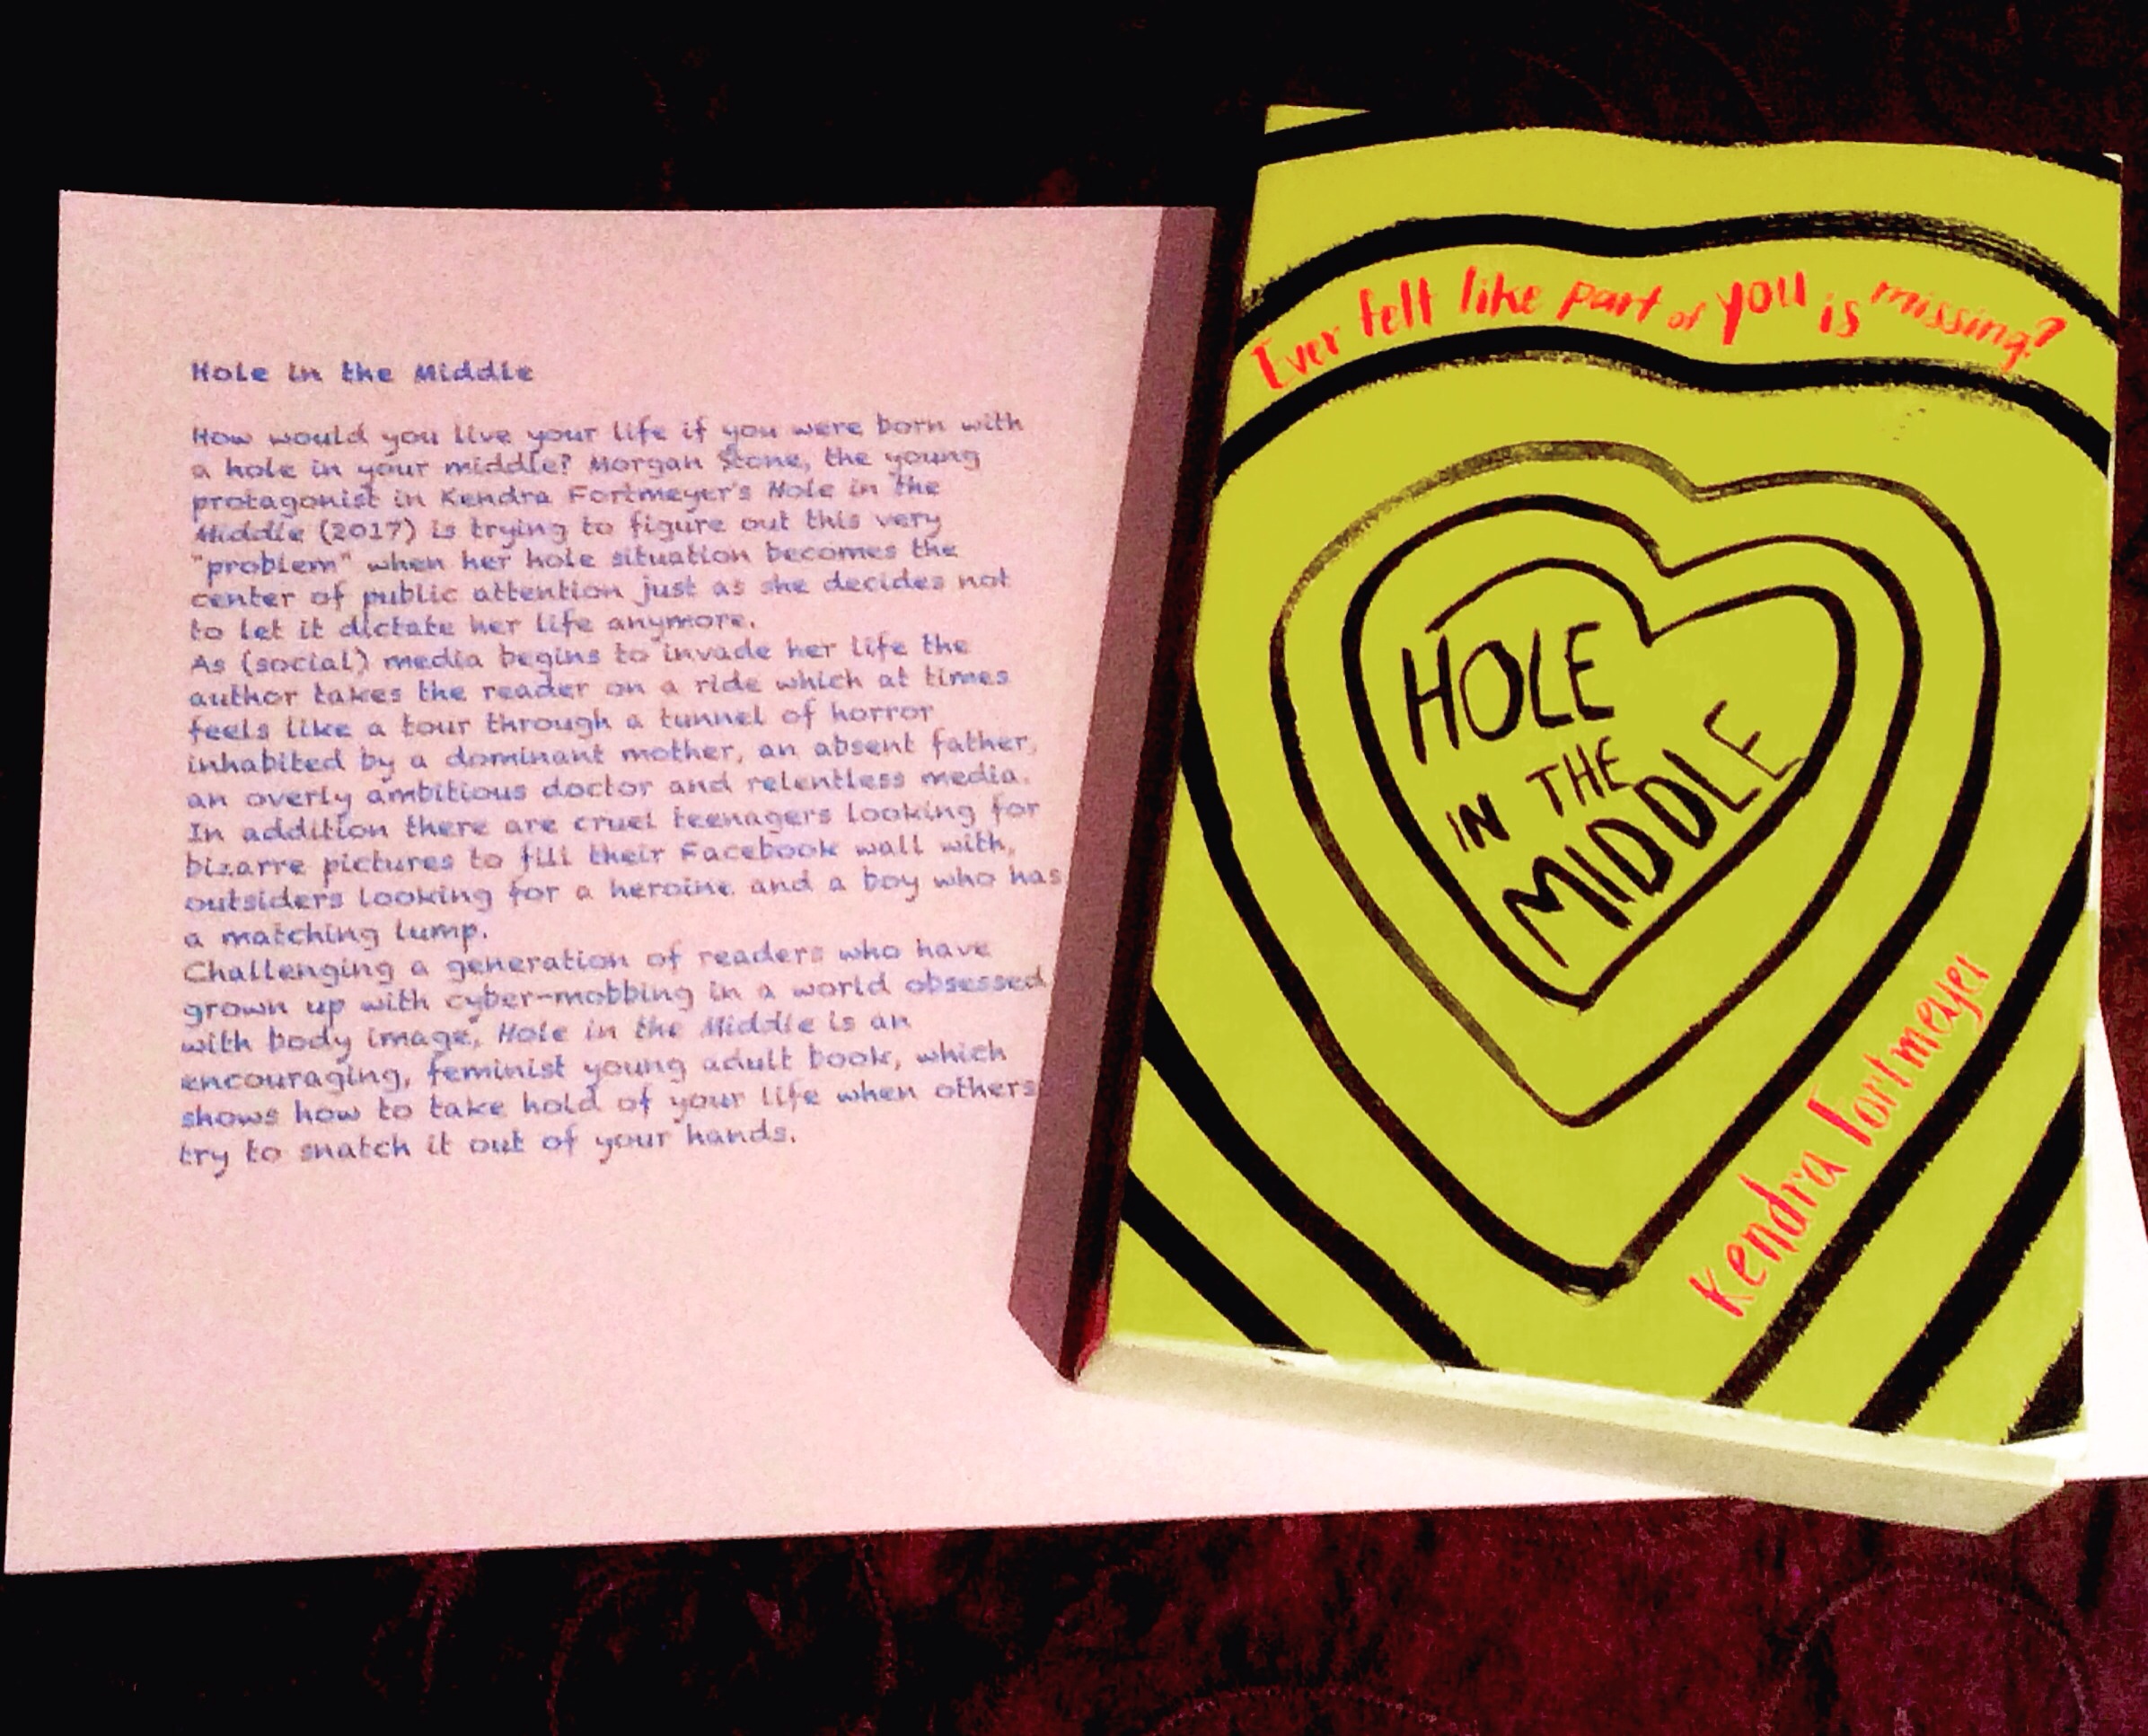 Hole in the Middle
How would you live your life if you were born with
a hole in your middle? Morgan Stone, the young
protagonist in Kendra Fortmeyer's Hole in the
Middle (2017) is trying to figure out this very
"problem" when her hole situation becomes the
center of public attention just as she decides not
to let it dictate her life anymore.
As (social) media begins to invade her life the
author takes the reader on a ride which at times
feels like a tour through a tunnel of horror
inhabited by a dominant mother, an absent father,
an overly ambitious doctor and relentless media.
In addition there are cruel teenagers looking for
bizarre pictures to fill their Facebook wall with,
outsiders looking for a heroine and a boy who has
a matching lump.
Challenging a generation of readers who have
grown up with cyber-mobbing in a world obsessed
with body image, Hole in the Middle is an
encouraging, feminist young adult book, which
shows how to take hold of your life when others
try to snatch it out of your hands.
Ever felt like part of you is missing?
HOLE
IN THE
MIDDLE
Kendra Fortmeyer